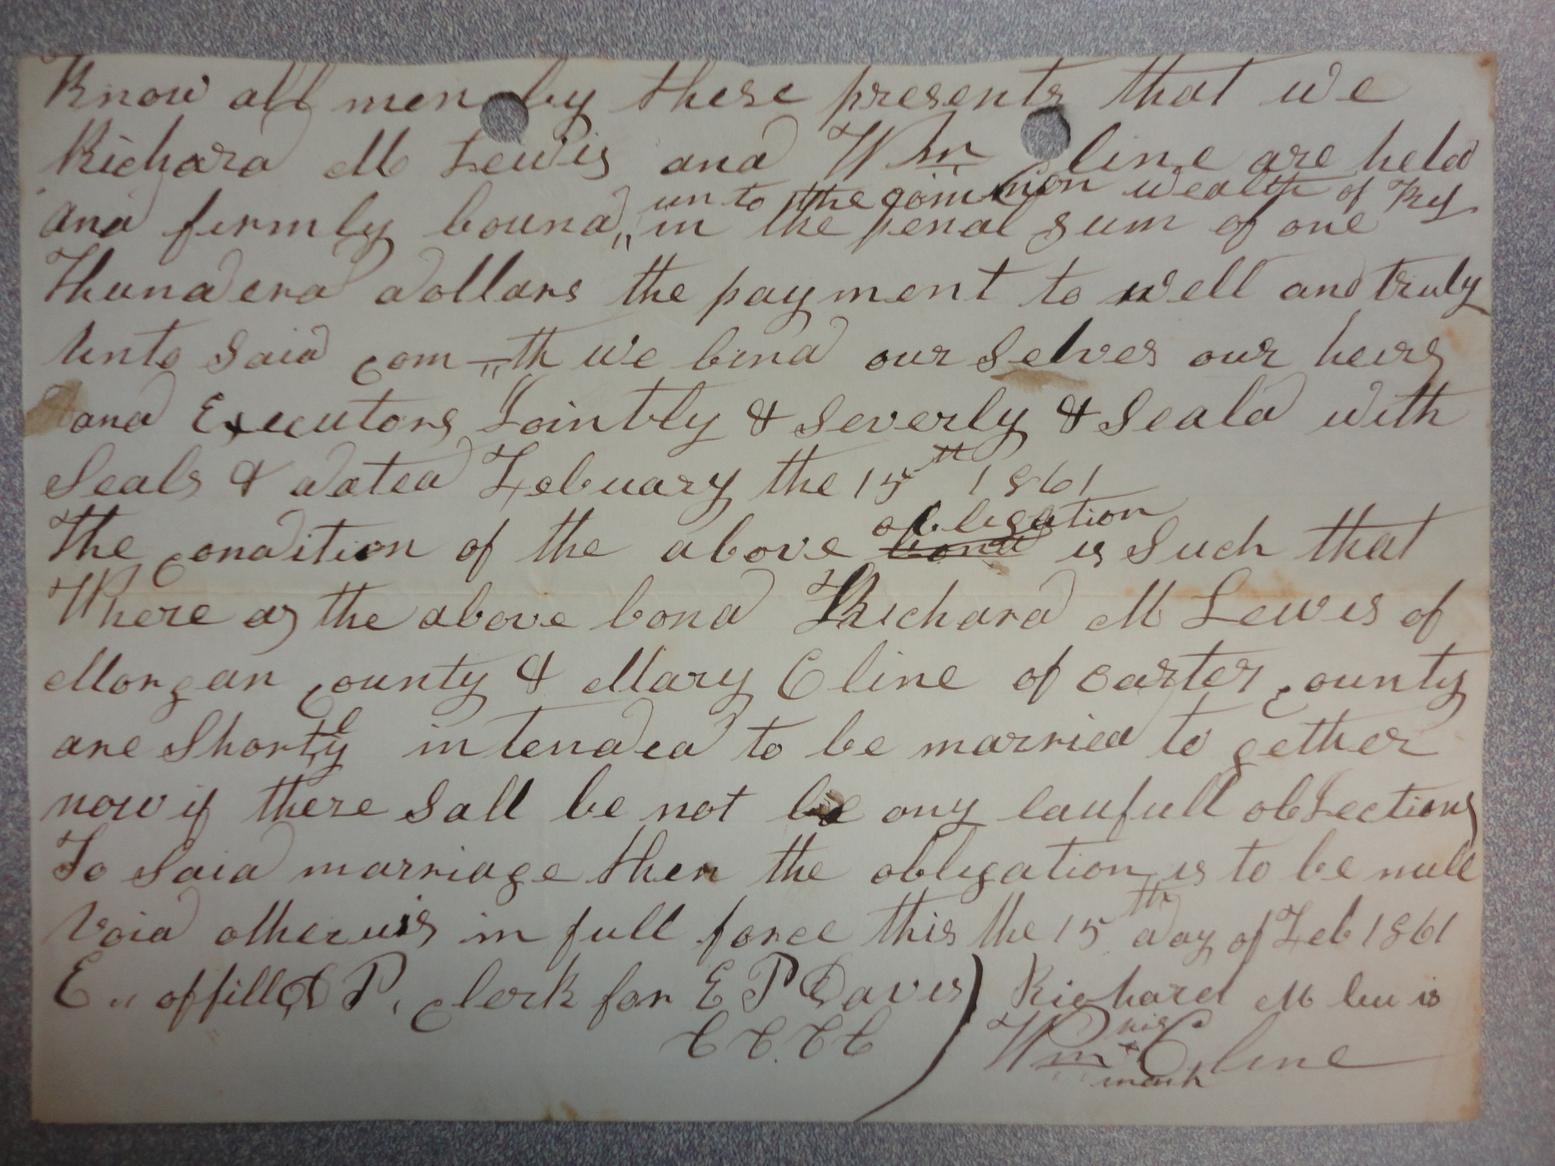 Know all men by these presents that we
Richard M Lewis and Wm Cline are held
unto the common wealth of Ky
and firmly bound,, in the penal sum of one
Hundred dollars the payment to well and truly
Unto Said com -,,th we bind our Selves our heirs
and Executors Jointly & Severly & Seald with
Seals & dated Febuary the 15th 1861
obligation
The condition of the above bond is Such that
Where as the above bond Richard M Lewis of
Morgan county & Mary Cline of Carter county
are Shortly intended to be married to gether
now if there Sall be not be any laufull objections
To Said marriage then the obligation is to be null
Void otherwis in full force this the 15th day of Feb 1861
E,, offill D P. clerk for E P Davis) Richard M lewis
C C. C C
his
Wm + Cline
mark